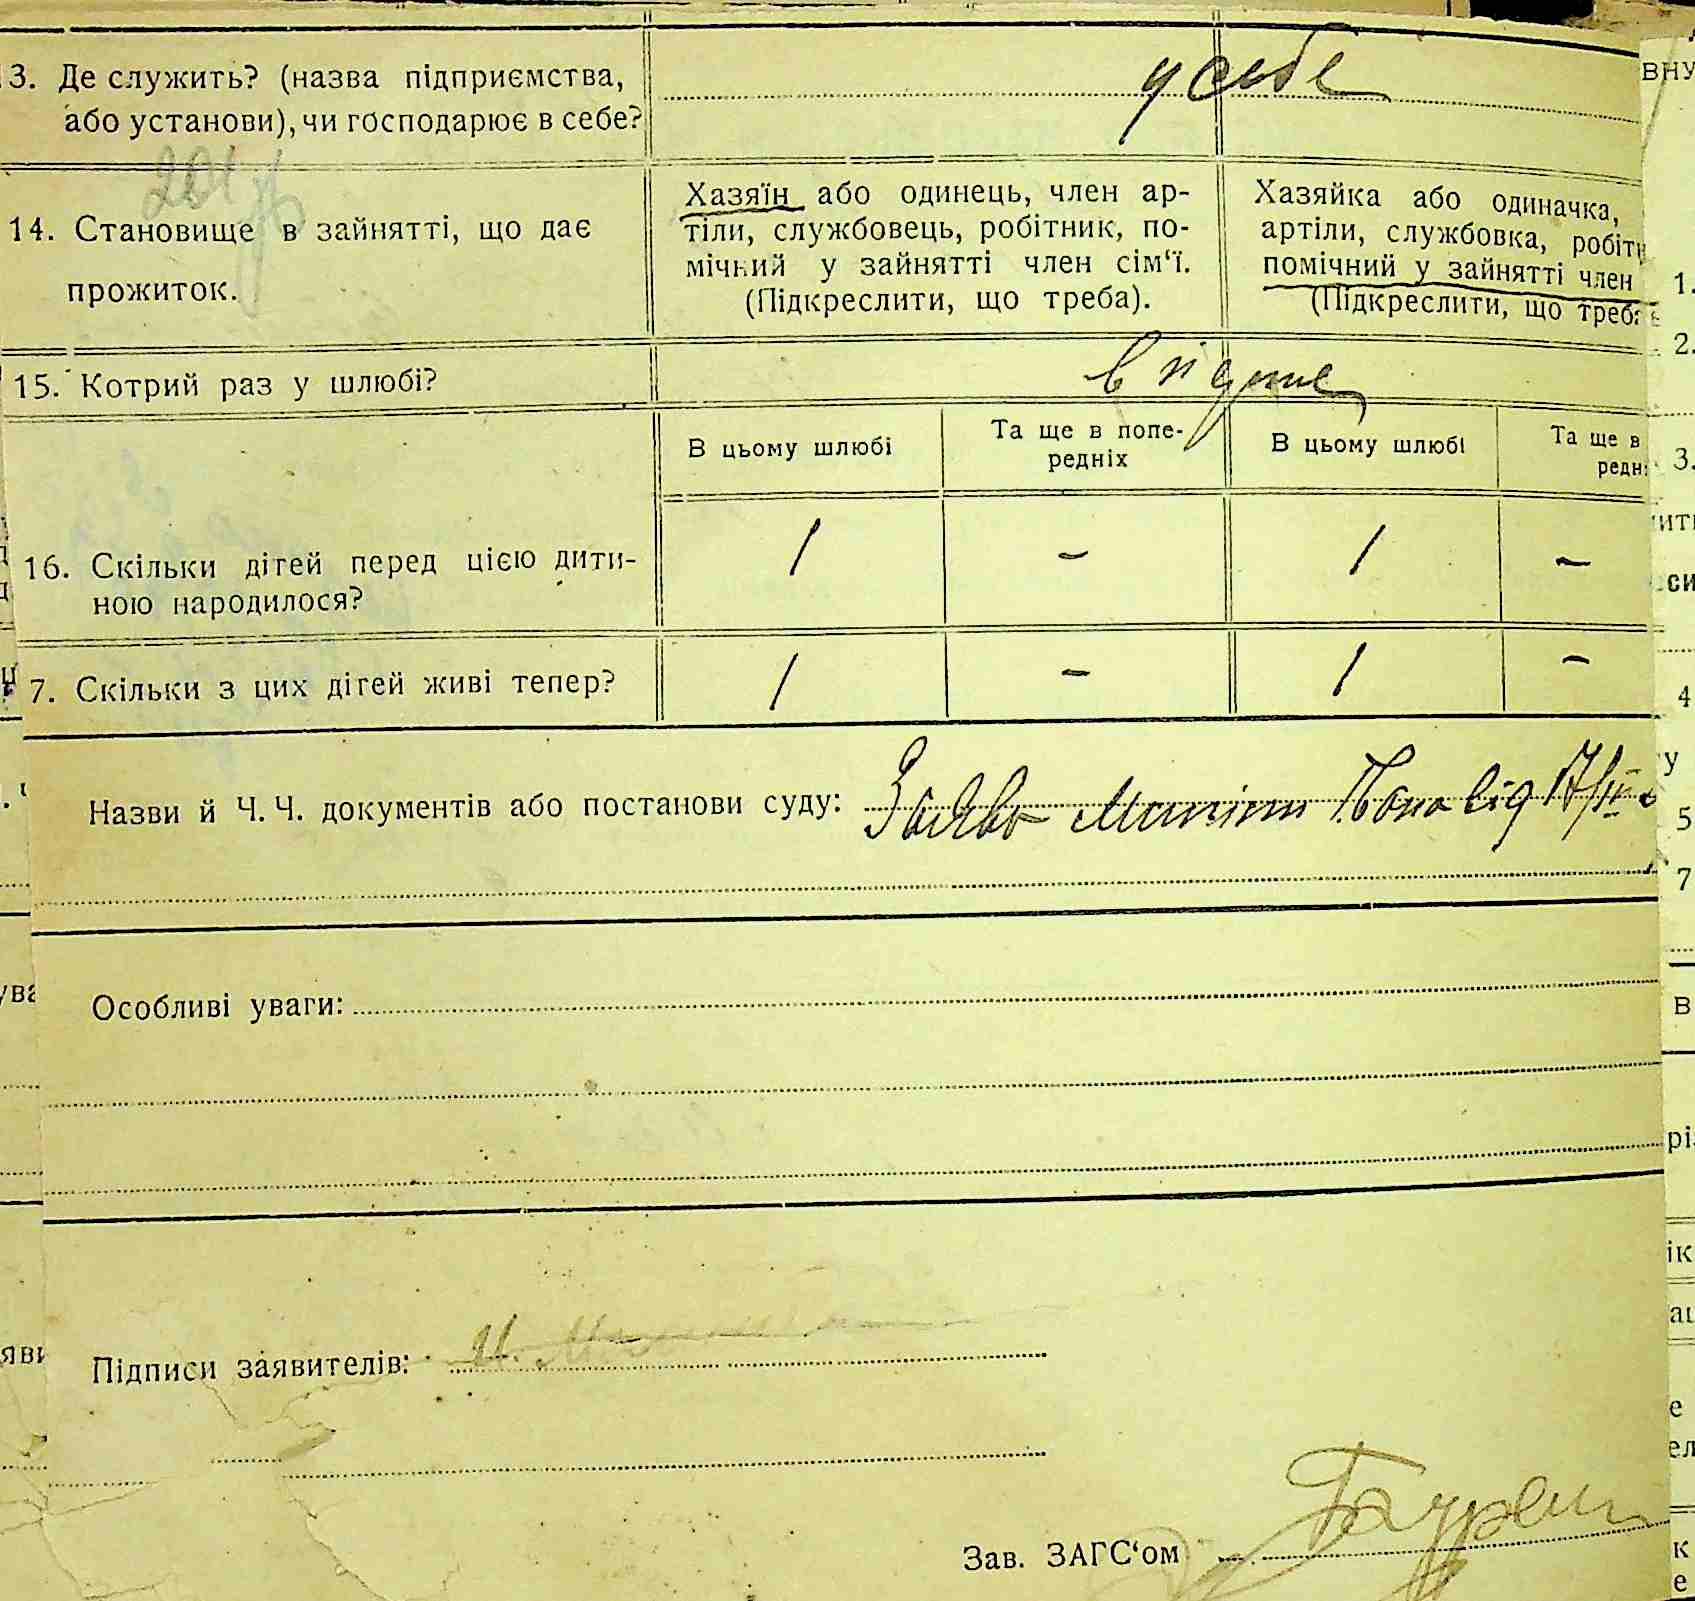 3. Де служить? (назва підприємства,
або установи), чи господарює в себе?
у себе
14. Становище в зайнятті, що дає
прожиток.
Хазяїн або одинець, член ар-
тіли, службовець, робітник, по-
мічний у зайнятті член сім‘ї.
(Підкреслити, що треба).
Хазяйка або одиначка,
артіли, службовка, робітн
помічний у зайнятті член
(Підкреслити, що треба
15. Котрий раз у шлюбі?
В цьому шлюбі
Та ще в попе-
редніх
В цьому шлюбі
Та ще в
редн
16. Скільки дітей перед цією дити-
ною народилося?
1 - 1 -
7. Скільки з цих дітей живі тепер?
1 - 1 -
Назви й Ч. Ч. документів або постанови суду: Заява від 17/
Особливі уваги:
Підписи заявителів:
Зав. ЗАГС‘ом